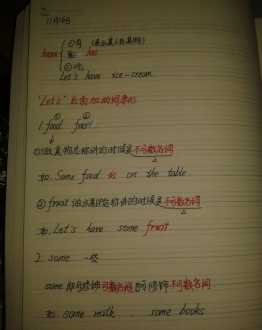 11月16日
①有 (
have has
②吃
Let's have ice-cream
"Let's" 后面加动词原形
① ②
1. food fruit
①做食物总称讲的时候是不可数名词
如. Some food is on the table
②fruit 做水果总称讲的时候是不可数名词
如. Let's have some fruit
2. some 一些
some 即可修饰可数名词 可修饰不可数名词
如 some milk some books